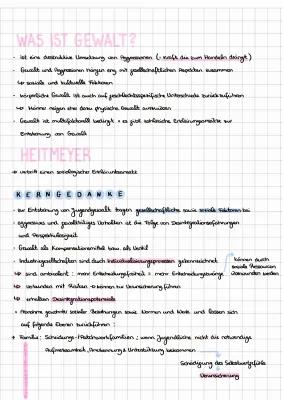 WAS IST GEWALT?
- ist eine destruktive Umsetzung von Aggressionen (→ Kraft die zum Handeln drängt)
- Gewalt und Aggressionen hängen eng mit gesellschaftlichen Aspekten zusammen
↳ soziale und kulturelle Faktoren
- körperliche Gewalt ist auch auf geschlechtsspezifische Unterschiede zurückzuführen
↳ Männer neigen eher dazu physische Gewalt auszuüben
- Gewalt ist multifaktoriell bedingt → es gibt zahlreiche Erklärungsansätze zur
Entstehung von Gewalt
HEITMEYER
→ vertritt einen soziologischen Erklärungsansatz
KERNGEDANKE
- zur Entstehung von Jugendgewalt tragen gesellschaftliche sowie soziale Faktoren bei
- aggressives und gewalttätiges Verhalten ist die Folge von Desintegrationserfahrungen
und Perspektivlosigkeit
- Gewalt als Kompensationsmittel bzw. als Ventil
- Industriegesellschaften sind durch Individualisierungsprozesse gekennzeichnet
können durch
soziale Ressourcen
überwunden werden
↳ sind ambivalent: mehr Entscheidungsfreiheit = mehr Entscheidungszwänge
↳ verbunden mit Risiken → können zur Verunsicherung führen
↳ enthalten Desintegrationspotenziale
→ Abnahme gewohnter sozialer Beziehungen sowie Normen und Werte und lassen sich
auf folgende Ebenen zurückführen:
→ Familie: Scheidungs-/Patchworkfamilien; wenn Jugendliche nicht die notwendige
Aufmerksamkeit, Anerkennung & Unterstützung bekommen
Schädigung des Selbstwertgefühls
Verunsicherung